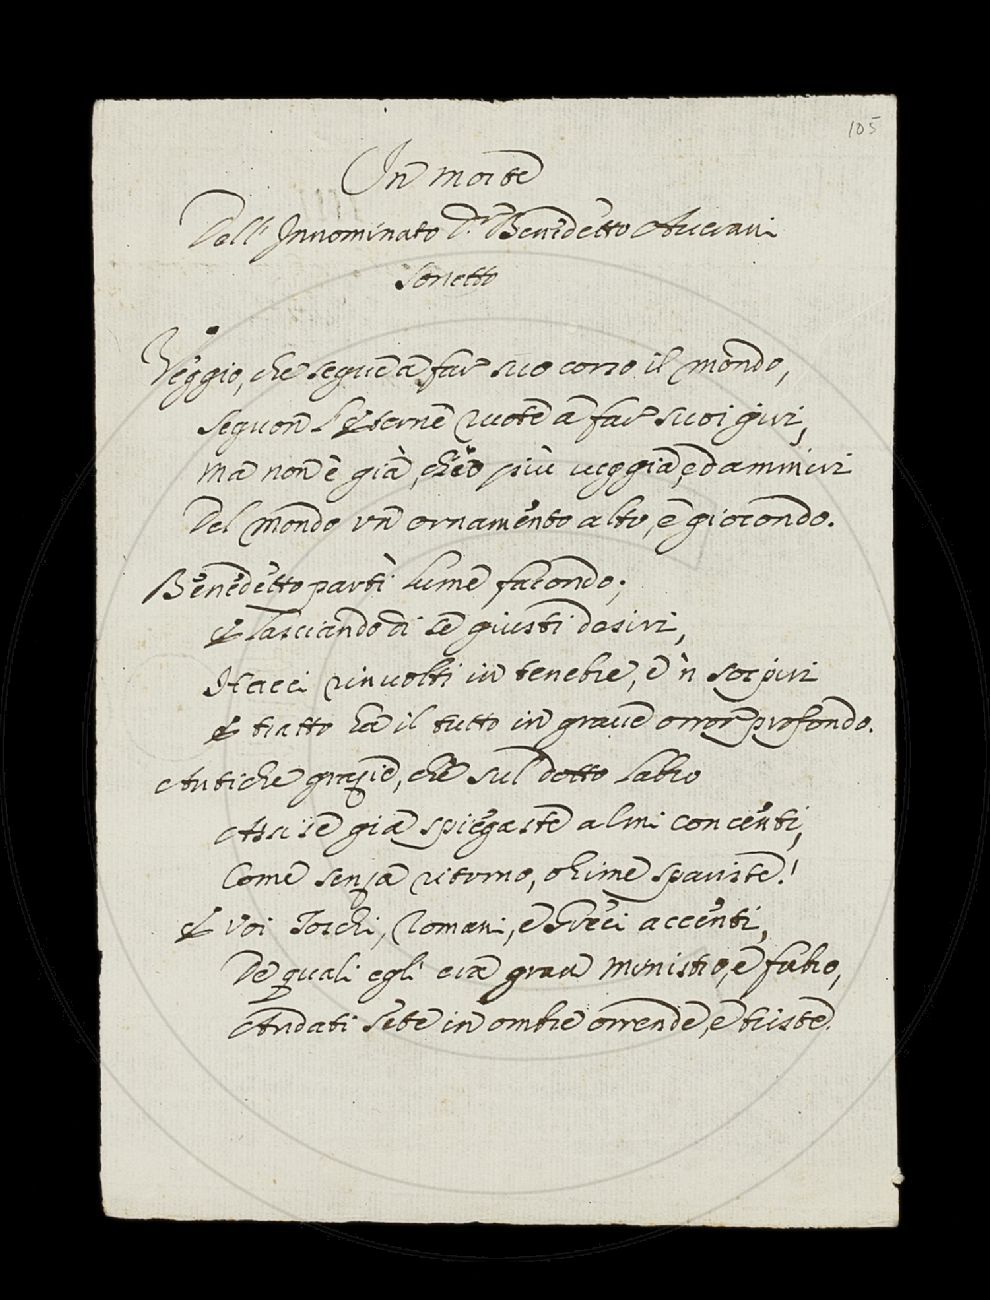 105
In morte
Dell' Innominato Dr. Benedetto Averani
Sonetto
Veggio, che segue a far suo corso il mondo,
Seguon l'Eterne ruote a far suoi giri,
Ma non è già, ch'io più veggia, ed ammiri
Del mondo un ornamento alto, e giocondo.
Benedetto partì lume facondo;
E lasciando di se giusti desiri,
Hacci rinvolti in tenebre, e 'n sospiri
E tratto ha il tutto in grave orror profondo.
Antiche grazie, che sul dotto labro
Assise già spiegaste almi concenti,
Come senza ritorno, ohime spariste!
E voi Toschi, Romani, e Greci accenti,
De quali egli era gran ministro, e fabro,
Andati sete in ombre orrende, e triste.